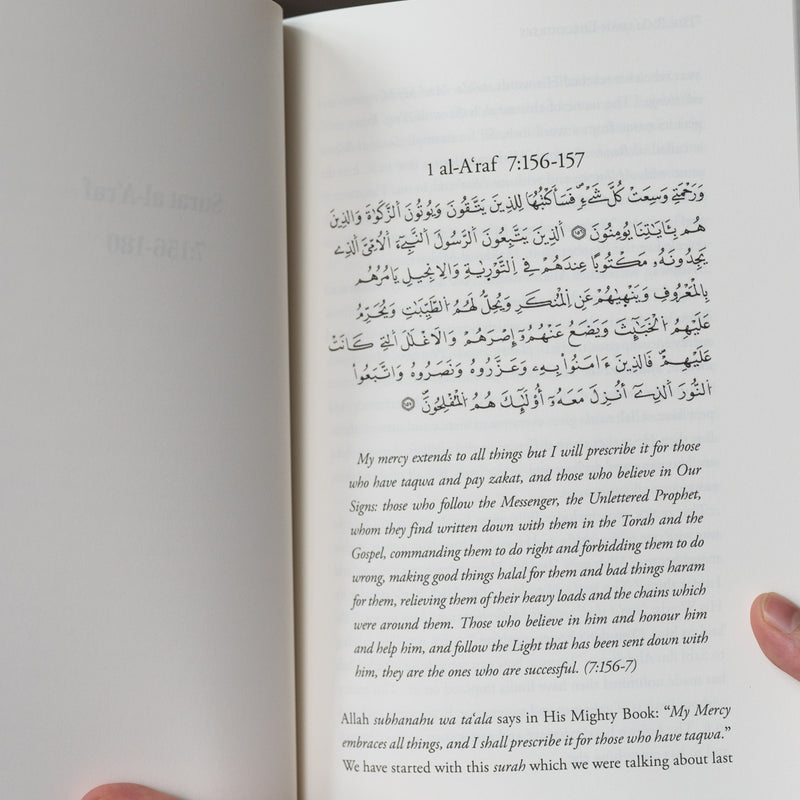 1 al-A‘raf 7:156-157
وَرَحْمَتِے وَسِعَتْ كُلَّ شَےْءٍۖ فَسَأَكْتُبُهَا لِلذِينَ يَتَّقُونَ وَيُوتُونَ اَ۬لزَّكَوٰةَ وَالذِينَ
هُم بِـَٔايَٰتِنَا يُومِنُونَ ١٥٦ اَ۬لذِينَ يَتَّبِعُونَ اَ۬لرَّسُولَ اَ۬لنَّبِےٓءَ اَ۬لُامِّيَّ اَ۬لذِے
يَجِدُونَهُۥ مَكْتُوبًا عِندَهُمْ فِے اِ۬لتَّوْر۪يٰةِ وَالِانجِيلِ يَامُرُهُم
بِالْمَعْرُوفِ وَيَنْهَيٰهُمْ عَنِ اِ۬لْمُنكَرِ وَيُحِلُّ لَهُمُ اُ۬لطَّيِّبَٰتِ وَيُحَرِّمُ
عَلَيْهِمُ اُ۬لْخَبَٰٓئِثَ وَيَضَعُ عَنْهُمُۥٓ إِصْرَهُمْ وَالَاغْلَٰلَ اَ۬لتِے كَانَتْ
عَلَيْهِمْۖ فَالذِينَ ءَامَنُواْ بِهِۦ وَعَزَّرُوهُ وَنَصَرُوهُ وَاتَّبَعُواْ
اُ۬لنُّورَ اَ۬لذِےٓ أُنزِلَ مَعَهُۥٓ أُوْلَٰٓئِكَ هُمُ اُ۬لْمُفْلِحُونَۖ ١٥٧
My mercy extends to all things but I will prescribe it for those
who have taqwa and pay zakat, and those who believe in Our
Signs: those who follow the Messenger, the Unlettered Prophet,
whom they find written down with them in the Torah and the
Gospel, commanding them to do right and forbidding them to do
wrong, making good things halal for them and bad things haram
for them, relieving them of their heavy loads and the chains which
were around them. Those who believe in him and honour him
and help him, and follow the Light that has been sent down with
him, they are the ones who are successful. (7:156-7)
Allah subhanahu wa ta‘ala says in His Mighty Book: “My Mercy
embraces all things, and I shall prescribe it for those who have taqwa.”
We have started with this surah which we were talking about last